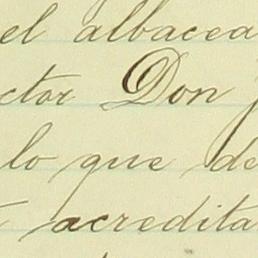 el albacea
ctor Don
lo que de
acredita